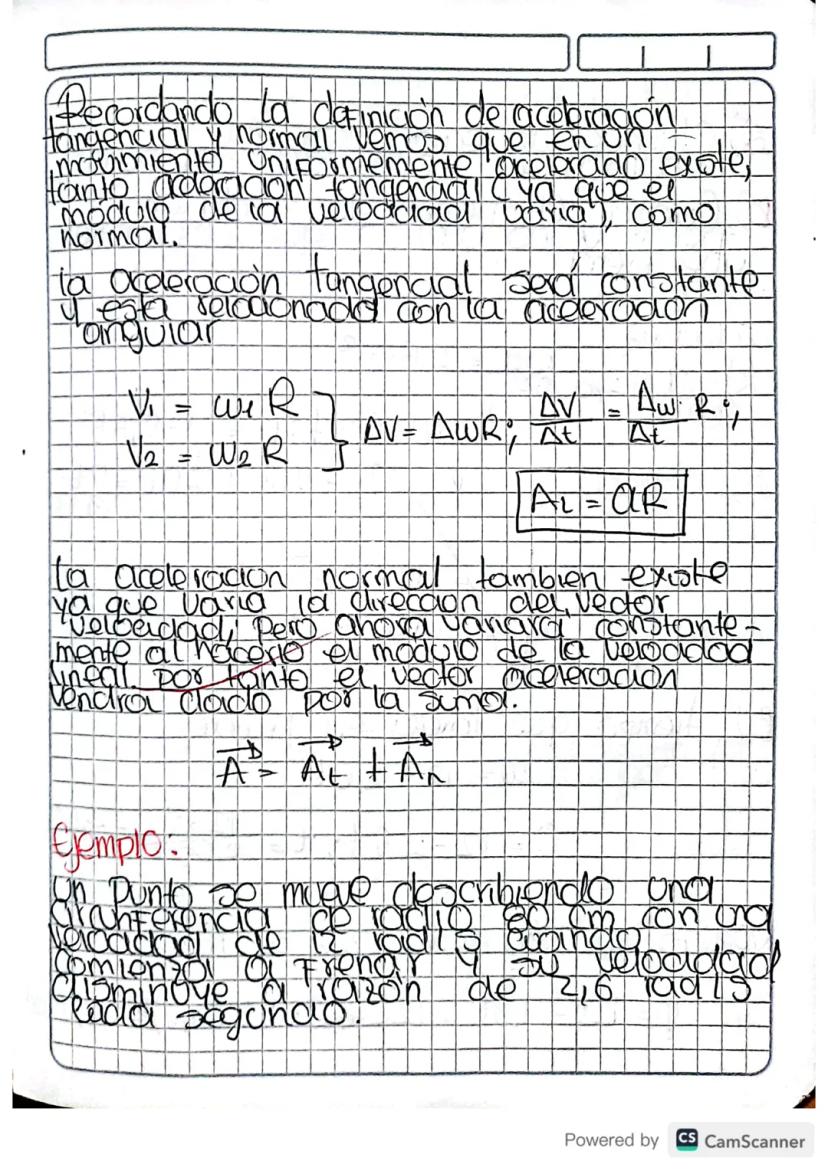 Recordando la definición de aceleración
tangencial y normal vemos que en un
movimiento uniformemente acelerado existe,
tanto aceleracion tangencial (ya que el
módulo de la velocidad varia), como
normal.
la aceleración tangencial será constante
y esta relacionada con la aceleracion
angular
V1 = ω1 R
V2 = ω2 R
ΔV = ΔωR; ΔV/Δt = Δω/Δt R;
AL = αR
la aceleracion normal tambien existe
ya que varia la direccion del vector
velocidad, pero ahora variara constante-
mente al hacerlo el modulo de la velocidad
lineal. por tanto el vector aceleracion
vendra dado por la suma.
A = At + An
Ejemplo:
Un punto se mueve describiendo una
circunferencia de radio 80 cm con una
velocidad de 12 rad/s cuando
comienza a frenar y su velocidad
disminuye a razón de 2,6 rad/s
cada segundo.
Powered by CS CamScanner